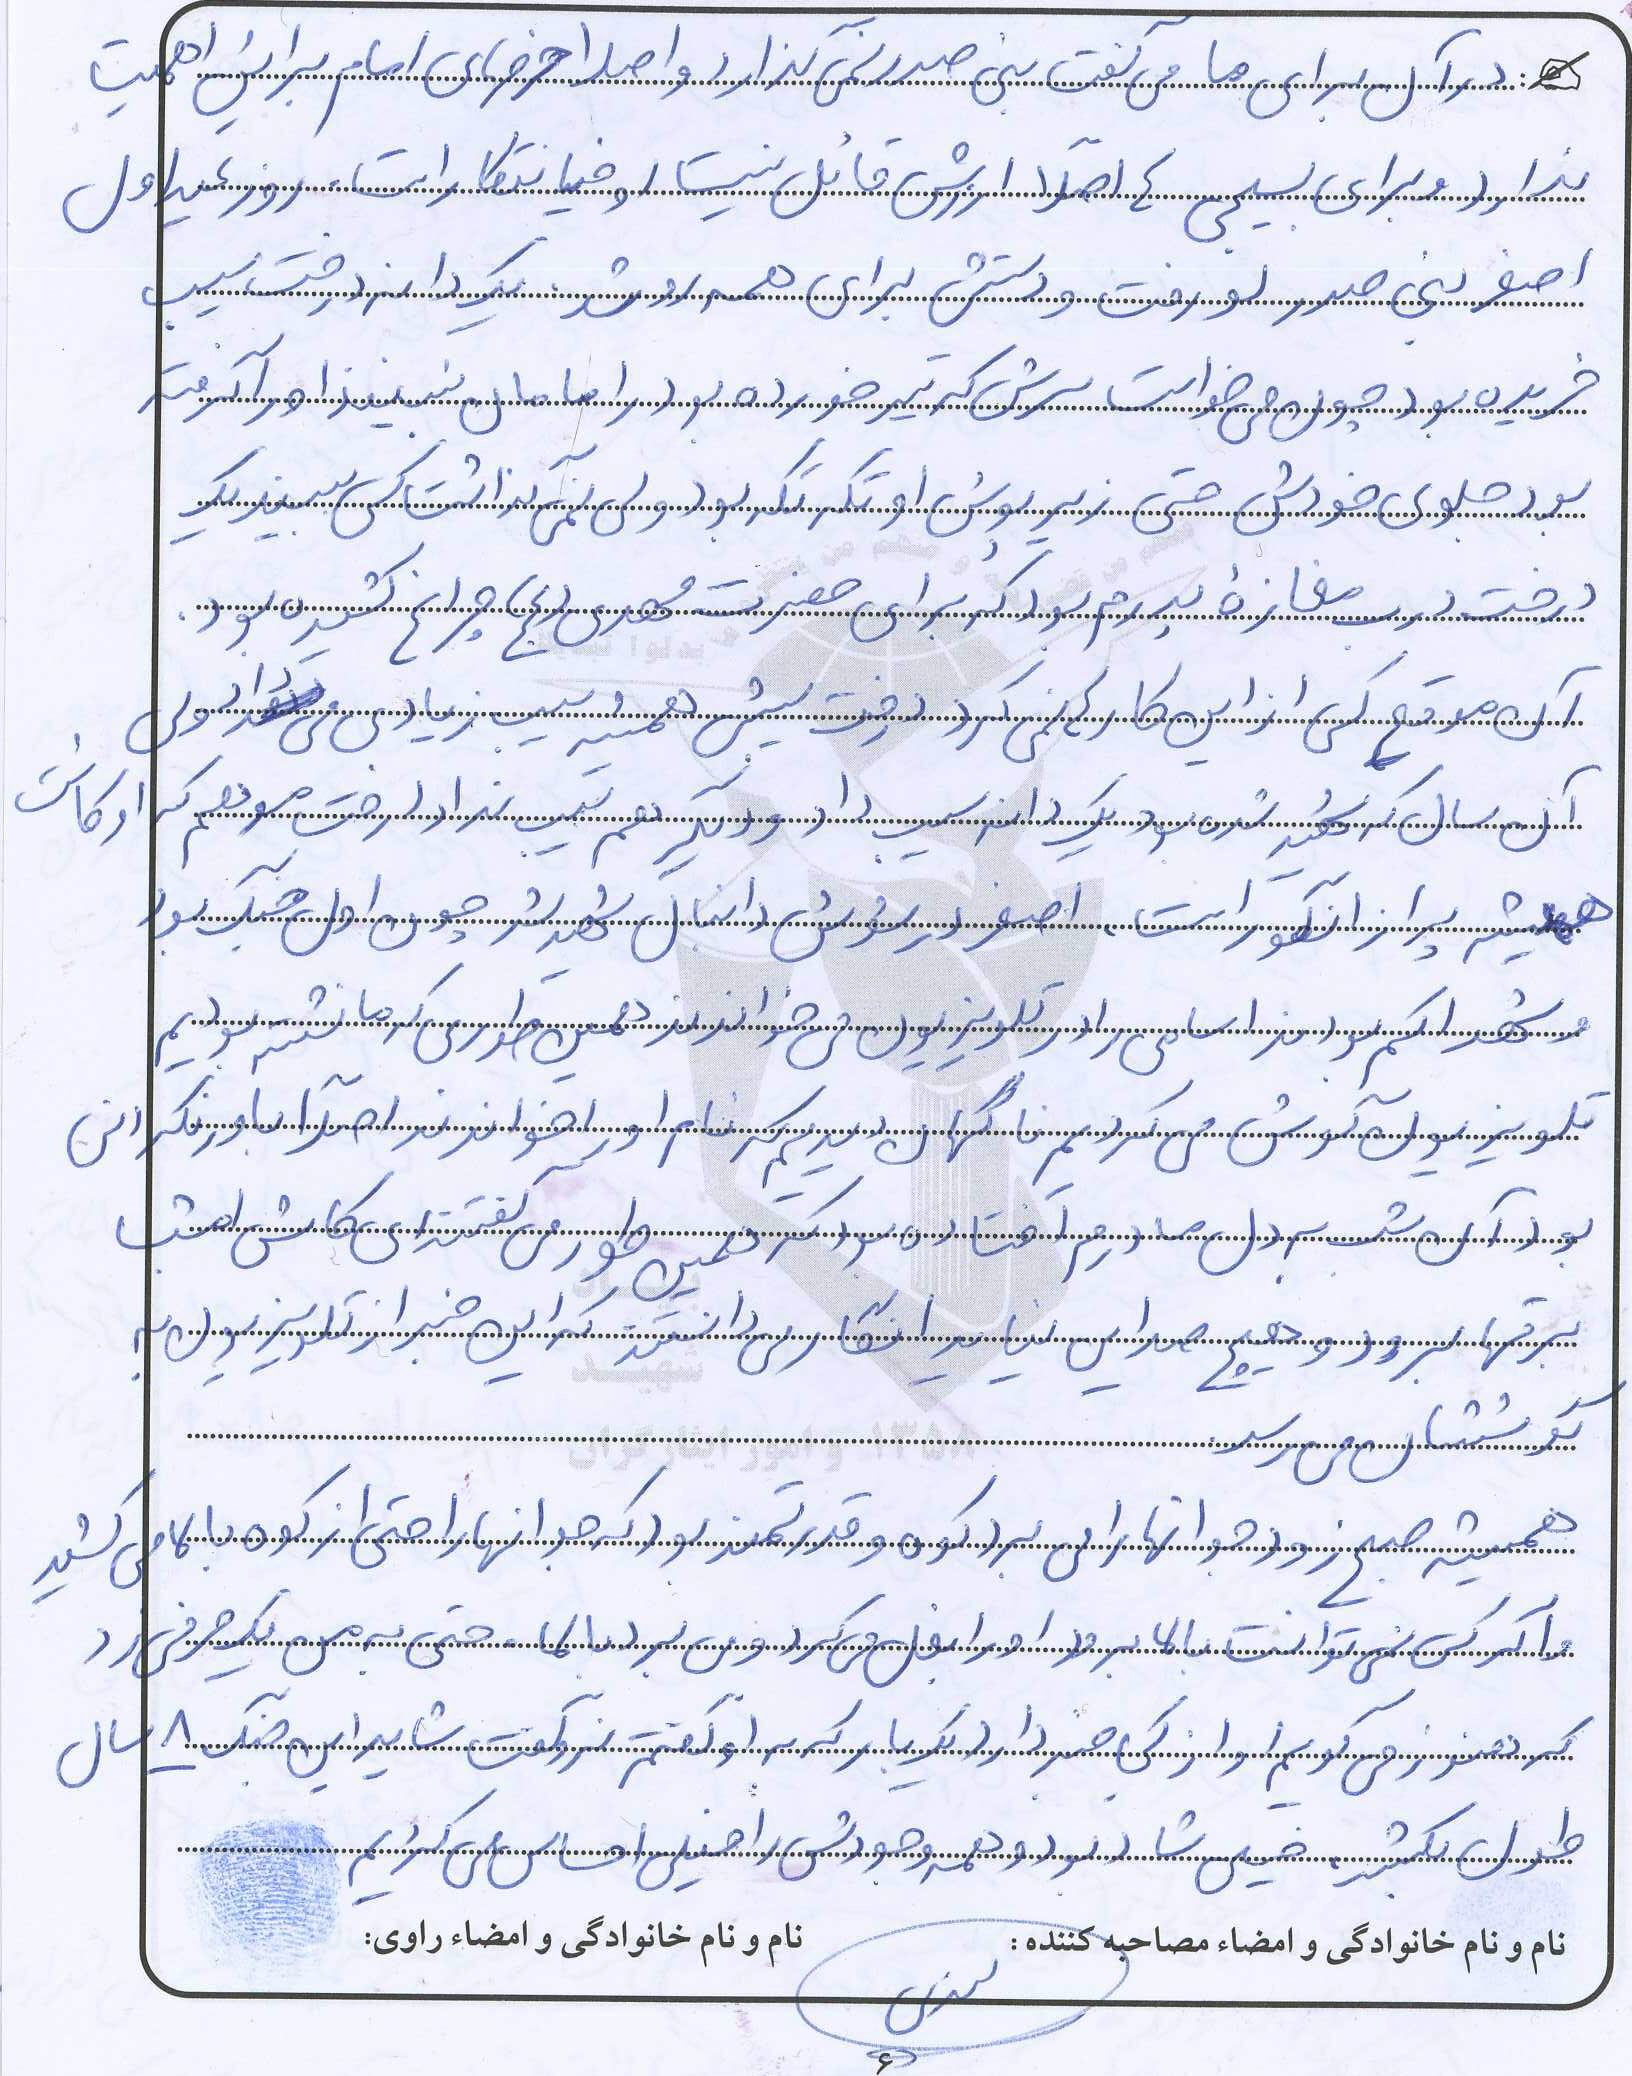 : درآن برای ما می گفت بنی صدر نمی گذارد و اصلا حرفهای امام برایش اهمیت
ندارد و برای بسیجی ها اصلاً ارزش قائل نیست او خیانتکار است. روز عید اول
اصغر بنی صدر لو رفت و دستش برای همه رو شد. یک دانه درخت سیب
خریده بود چون می خواست سرش که تیر خورده بود را مامان نبیند او را گرفته
بود جلوی خودش حتی زیر پوش او تکه تکه بود ولی نمی گذاشت کسی ببیند یک
درخت درب مغازهٔ پدرم بود که برای حضرت مهدی (عج) چراغ کشیده بود.
آن موقع کسی از این کارها نمی کرد درخت سیبش همیشه سیب زیادی می داد ولی
آن سال که شهید شده بود یک دانه سیب داد و دیگر هم سیب نداد درخت مو هم که او کاشت
همیشه پر از انگور است. اصغر در شوش دانیال شهید شد چون اول جنگ بود
و شهدا کم بودند اسامی را در تلویزیون می خواندند همین طوری که ما نشسته بودیم
تلویزیون گوش می کردیم ناگهان دیدیم که نام او را خواندند اصلاً باور نکردنی
بود آن شب به دل مادرم افتاده بود که همین طور می گفتند ای کاش امشب
برقها برود و هیچ صدایی نیاید انگار می دانستند که این خبر از تلویزیون به
گوششان می رسد.
همیشه صبح زود جوانها را می برد کوه و قدرتمند بود که جوانها را حتی از کوه بالا می کشید
و اگر کسی نمی توانست بالا برود او را بغل می کرد و می برد بالا. حتی به من یک حرفی زد
که هنوز می گویم او از کی خبر دارد یک بار که به او گفتم نرو گفت شاید این جنگ ۸ سال
طول بکشد. خیلی شاد بود و همه وجودش را خیلی احساس می کردیم
نام و نام خانوادگی و امضاء مصاحبه کننده :
نام و نام خانوادگی و امضاء راوی:
۶